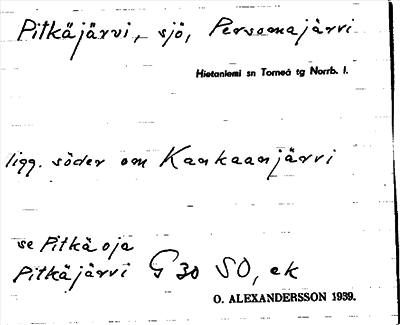 Pitkäjärvi, sjö, Persomajärvi
Hietaniemi sn Torneå tg Norrb. l.
ligg. söder om Kankaanjärvi
se Pitkäoja
Pitkäjärvi G 30 SO, ek
O. ALEXANDERSSON 1939.